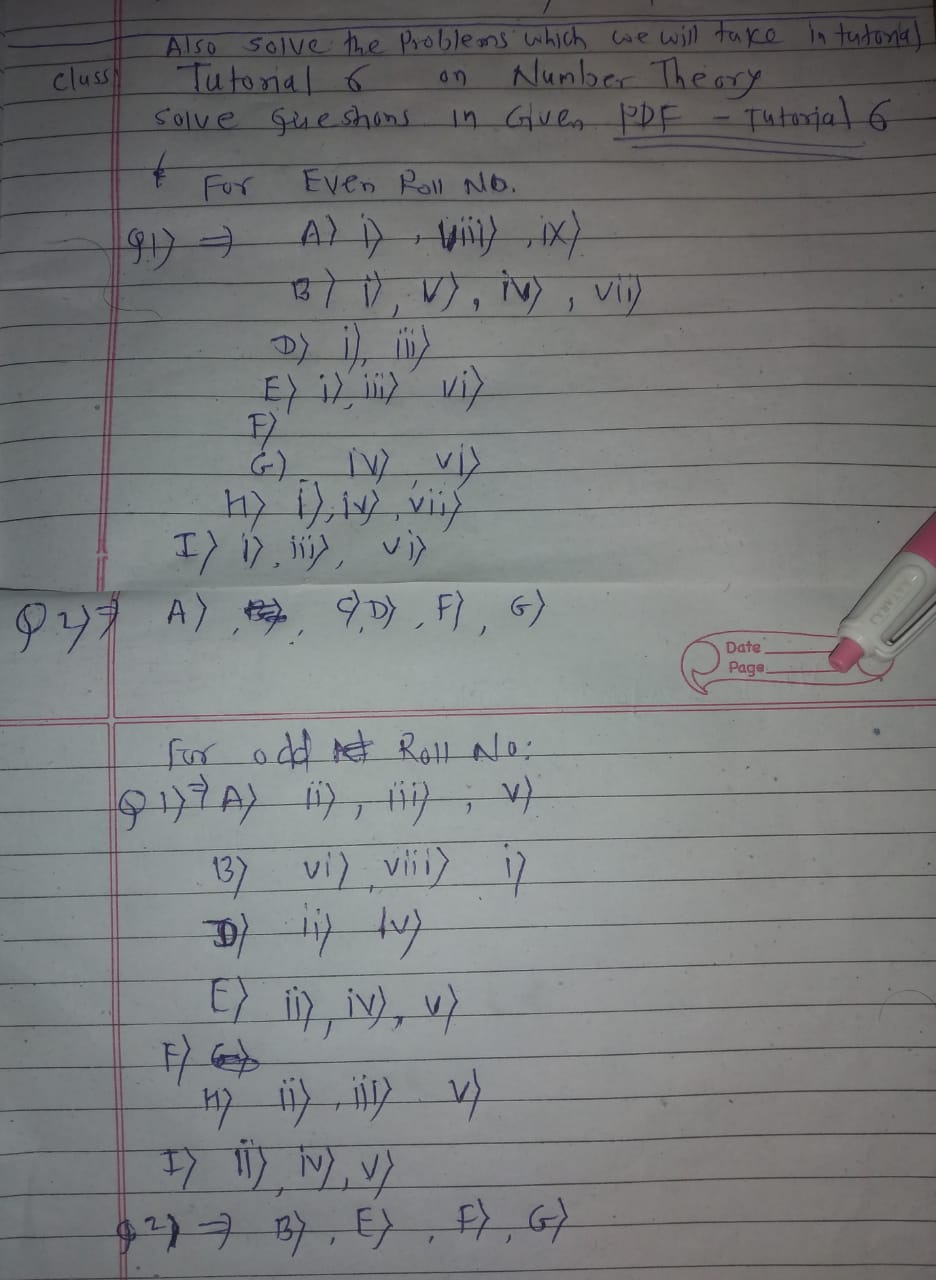 Also solve the Problems which we will take in tutorial
class Tutorial 6 on Number Theory
Solve Questions in Given PDF - Tutorial 6
For Even Roll No.
Q.1) ⇒ A) i) , viii) , ix)
B) i), v), iv) , vii)
D) i), iii)
E) i), iii) vi)
F)
G) iv), vi)
H) i), iv), vii)
I) i), iii), vi)
Q 2) ⇒ A) , , C), D) , F) , G)
Date
Page
For odd Roll No:
Q 1) ⇒ A) ii) , iii) , v)
B) vi), viii) i)
D) ii) iv)
E) ii), iv), v)
F)
H) ii) , iii) v)
I) ii), iv), v)
Q 2) ⇒ B) , E) , F) , G)